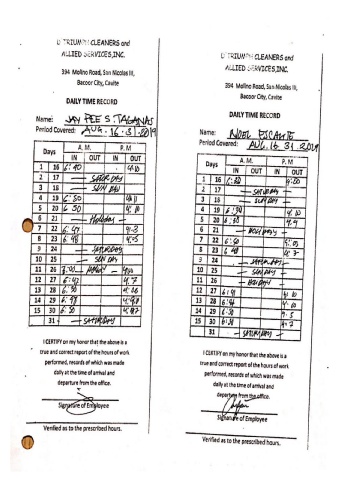 D'TRIUMPH CLEANERS and
ALLIED SERVICES,INC.
394 Molino Road, San Nicolas III,
Bacoor City, Cavite
DAILY TIME RECORD
Name: JAY PEE S. TAGANAS
Period Covered: AUG. 16-31-2019
Days A. M. P. M
IN OUT IN OUT
1 16 6:40 4:10
2 17 — SATURDAY —
3 18 — SUNDAY —
4 19 6:30 4:11
5 20 6:30 4:10
6 21 — Holiday —
7 22 6:47 4:3
8 23 6:48 4:05
9 24 — SATURDAY —
10 25 — SUNDAY
11 26 7:00
12 27 6:42 4:7
13 28 6:30
14 29 6:48
15 30 6:30
31 — SATURDAY
I CERTIFY on my honor that the above is a
true and correct report of the hours of work
performed, records of which was made
daily at the time of arrival and
departure from the office.
Signature of Employee
Verified as to the prescribed hours.
D'TRIUMPH CLEANERS and
ALLIED SERVICES,INC.
394 Molino Road, San Nicolas III,
Bacoor City, Cavite
DAILY TIME RECORD
Name: NOEL ESCAÑTE
Period Covered: AUG. 16-31-2019
Days A. M. P. M
IN OUT IN OUT
1 16 6:30 4:20
2 17 — SATURDAY —
3 18 — SUNDAY —
4 19 6:30 4:10
5 20 6:30 4:9
6 21 — HOLIDAY —
7 22 6:50 4:05
8 23 6:48 4:3
9 24 — SATURDAY —
10 25 — SUNDAY —
11 26 — HOLIDAY —
12 27 6:41 4:10
13 28 6:41 4:10
14 29 6:30 4:5
15 30 6:30 4:7
31 — SATURDAY —
I CERTIFY on my honor that the above is a
true and correct report of the hours of work
performed, records of which was made
daily at the time of arrival and
departure from the office.
Signature of Employee
Verified as to the prescribed hours.